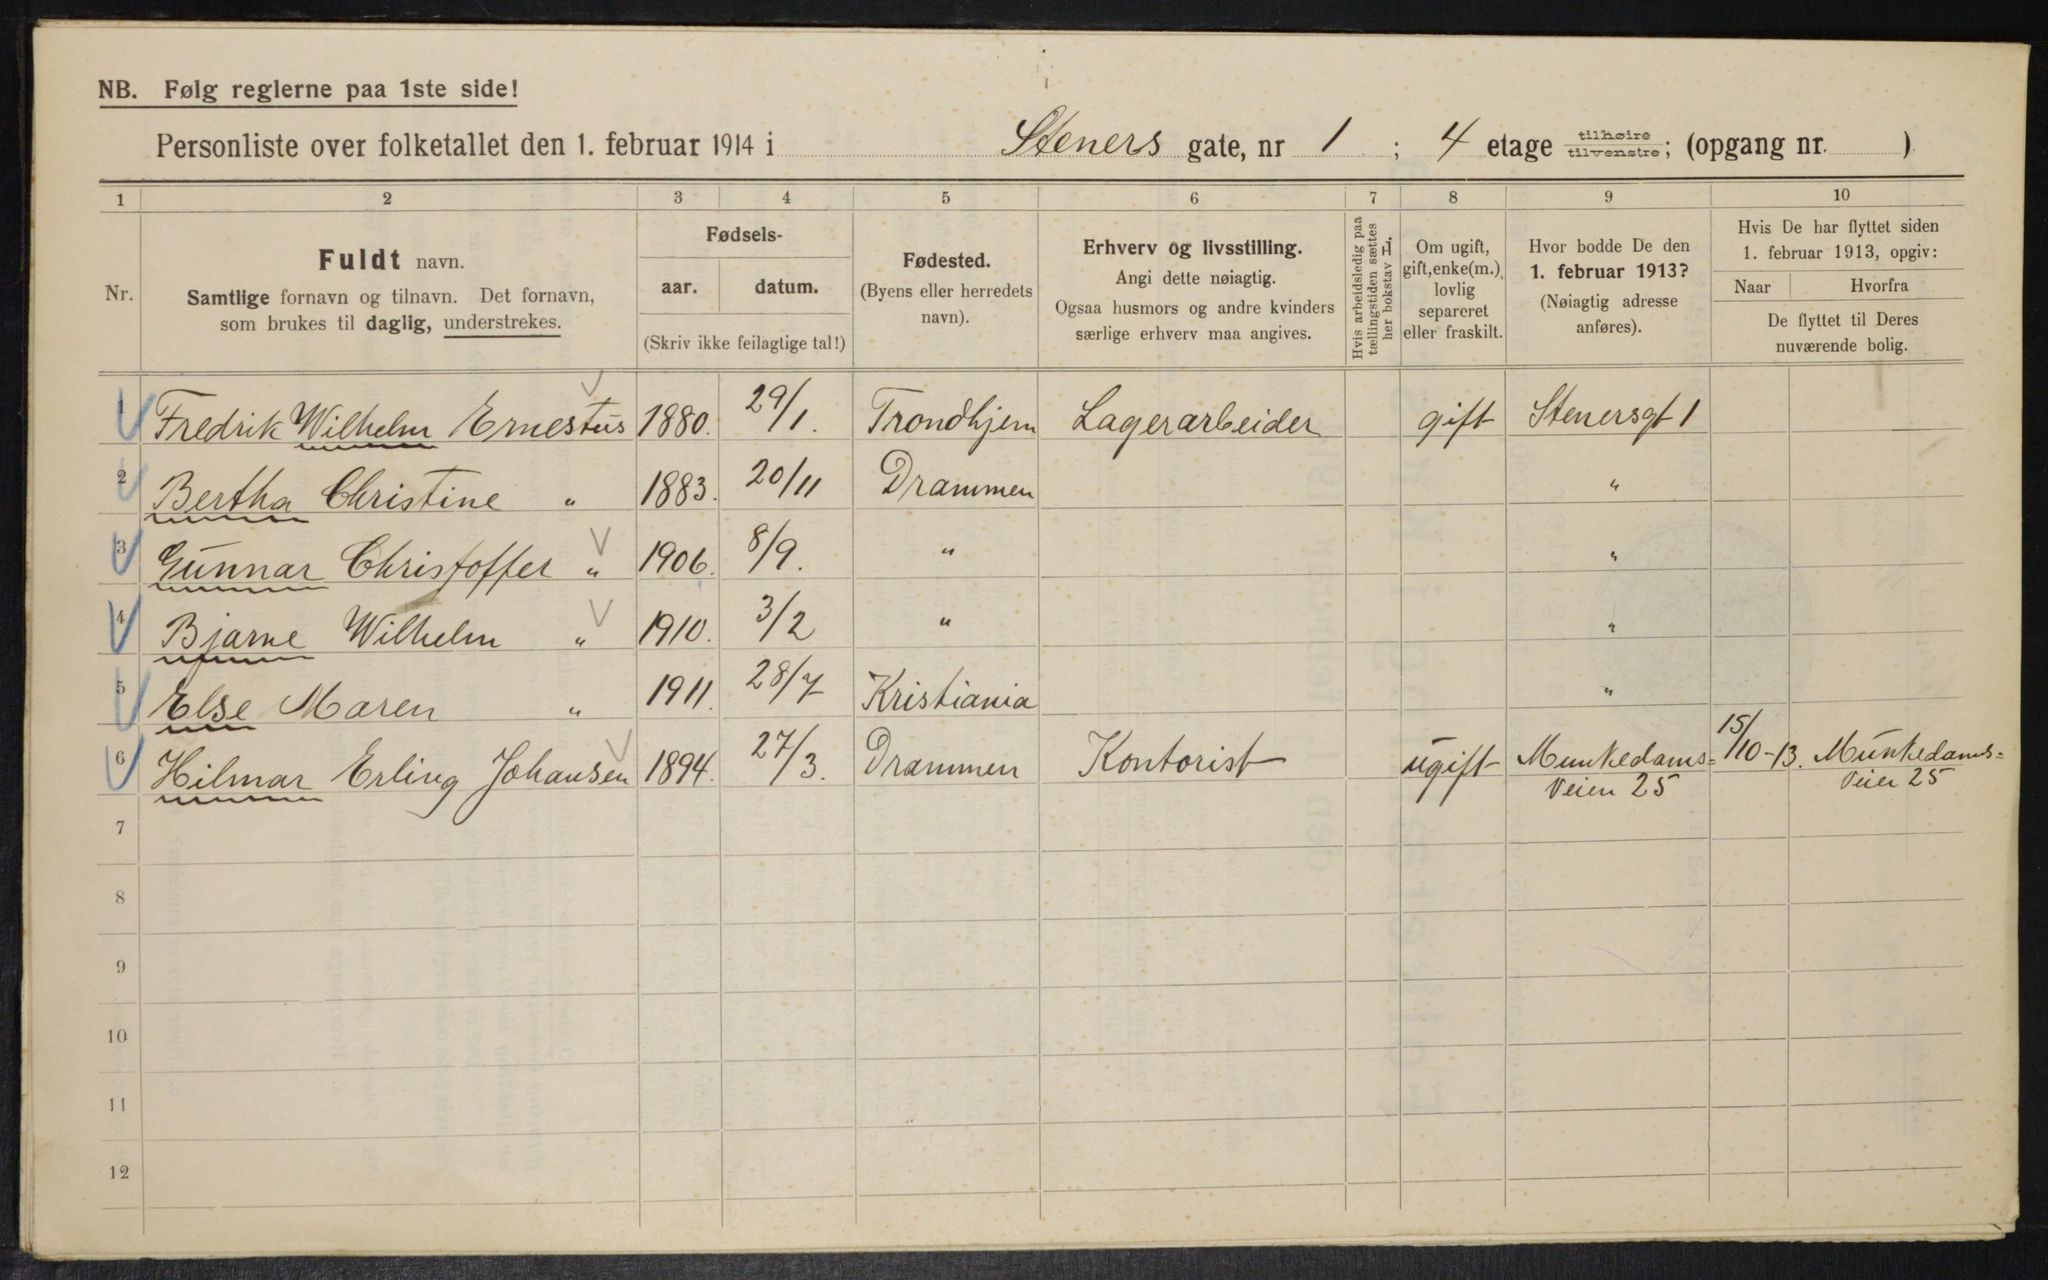 NB. Følg reglerne paa 1ste side!
Personliste over folketallet den 1. februar 1914 i Steners gate, nr 1 ; 4 etage tilhøire / tilvenstre; (opgang nr. )
1 2 3 4 5 6 7 8 9 10
Nr.
Fuldt navn.
Samtlige fornavn og tilnavn. Det fornavn,
som brukes til daglig, understrekes.
Fødsels-
aar. datum.
(Skriv ikke feilagtige tal!)
Fødested.
(Byens eller herredets
navn).
Erhverv og livsstilling.
Angi dette nøiagtig.
Ogsaa husmors og andre kvinders
særlige erhverv maa angives.
Hvis arbeidsledig paa
tællingstiden sættes
her bokstav L.
Om ugift,
gift, enke(m.),
lovlig
separeret
eller fraskilt.
Hvor bodde De den
1. februar 1913?
(Nøiagtig adresse
anføres).
Hvis De har flyttet siden
1. februar 1913, opgiv:
Naar Hvorfra
De flyttet til Deres
nuværende bolig.
1 Fredrik Wilhelm Ernestus 1880. 29/1. Trondhjem Lagerarbeider gift Stenersgt 1
2 Bertha Christine " 1883. 20/11 Drammen "
3 Gunnar Christoffer " 1906. 8/9. " "
4 Bjarne Wilhelm " 1910. 3/2 " "
5 Else Maren " 1911. 28/7 Kristiania "
6 Hilmar Erling Johansen 1894. 27/3. Drammen Kontorist ugift Munkedams= 15/10-13. Munkedams=
Veien 25 Veien 25
7
8
9
10
11
12